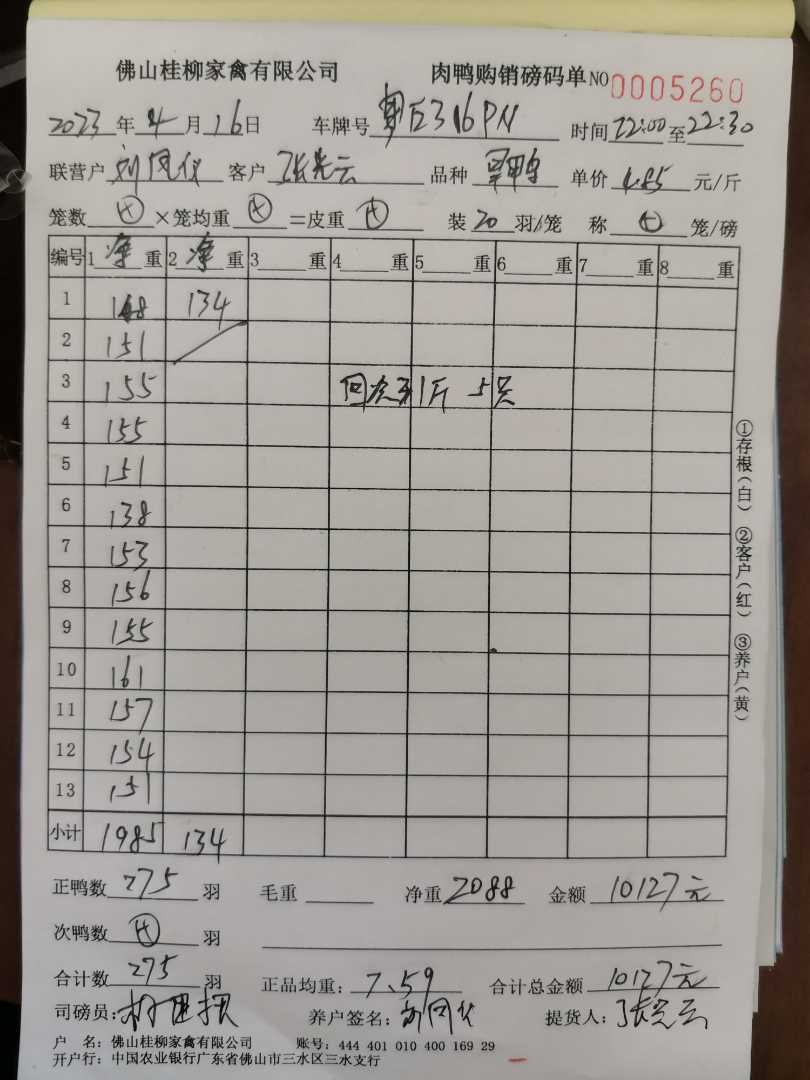 佛山桂柳家禽有限公司 肉鸭购销磅码单 NO 0005260
2023年4月16日 车牌号 316PN 时间22:00至22:30
联营户 客户 品种 单价4.85元/斤
笼数 ×笼均重 =皮重 装20羽/笼 称 笼/磅
编号 1净重 2净重 3 重 4 重 5 重 6 重 7 重 8 重
1 134
2 151
3 155 1斤 5只
4 155
5 151
6 138
7 153
8 156
9 155
10 161
11 157
12 154
13 151
小计 1985 134
正鸭数275羽 毛重 净重2088 金额10127元
次鸭数 羽
合计数275羽 正品均重:7.59 合计总金额10127元
司磅员: 养户签名: 提货人:
户 名:佛山桂柳家禽有限公司 账号:444 401 010 400 169 29
开户行:中国农业银行广东省佛山市三水区三水支行
①存根(白) ②客户(红) ③养户(黄)